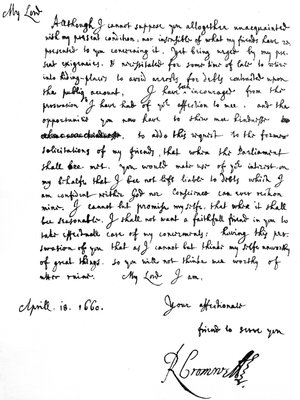 My Lord
Although I cannot suppose you altogether unacquainted
with my present condition, nor insensible of what my friends have re-
presented to you concerning it. yet being urged by my pre-
sent exigencies, & necessitated for some time of late to retire
into hiding-places to avoid arrests for debts contracted upon
the publiq account, I have been incouraged from the
perswasion I have had of yr affection to mee. and the
opportunities you now have to show mee kindnesse
to adde this request to the former
solicitations of my friends, that when the Parliament
shall bee met. you would make use of yr interest on
my behalfe that I bee not left liable to debts which I
am confident neither God nor Conscience can ever reckon
mine. I cannot but promise my selfe, that when it shall
bee seasonable, I shall not want a faithfull friend in you to
take effectuall care of my concernments: having this per-
swasion of you that as I cannot but thinke my selfe unworthy
of great things. so you will not thinke mee worthy of
utter ruine. My Lord I am.
Aprill. 18. 1660. Your affectionate
friend to serve you
R Cromwell